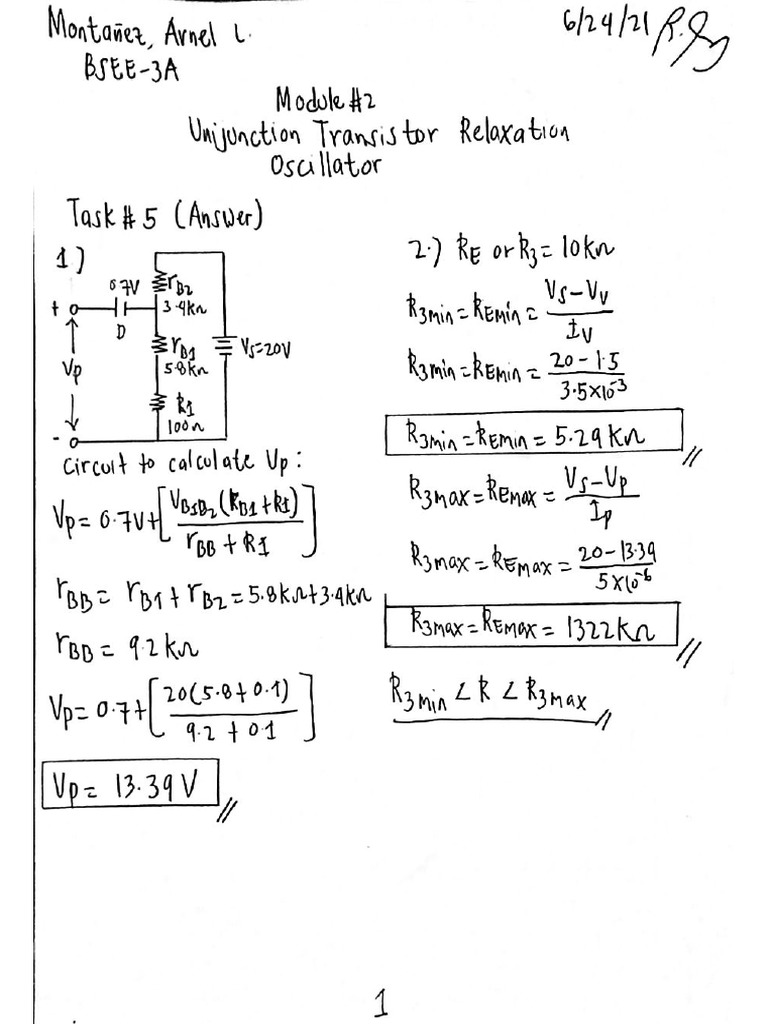 Montañez, Arnel L.
6/24/21
BSEE-3A
Module #2
Unijunction Transistor Relaxation
Oscillator
Task # 5 (Answer)
1)
0.7V
rB2
3.4kΩ
+
D
Vp
rB1
5.8kΩ
Vs=20V
R1
100Ω
-
Circuit to calculate Vp:
Vp = 0.7V+[VB1B2(RB1+R1)/rBB + R1]
rBB = rB1 + rB2 = 5.8kΩ+3.4kΩ
rBB = 9.2kΩ
Vp = 0.7+[20(5.8+0.1)/9.2 + 0.1]
Vp = 13.39 V
2.) RE or R3 = 10kΩ
R3min = REmin = Vs-Vv/Iv
R3min = REmin = 20-1.5/3.5x10^-3
R3min = REmin = 5.29kΩ
R3max = REmax = Vs-Vp/Ip
R3max = REmax = 20-13.39/5x10^-6
R3max = REmax = 1322kΩ
R3min < R < R3max
1